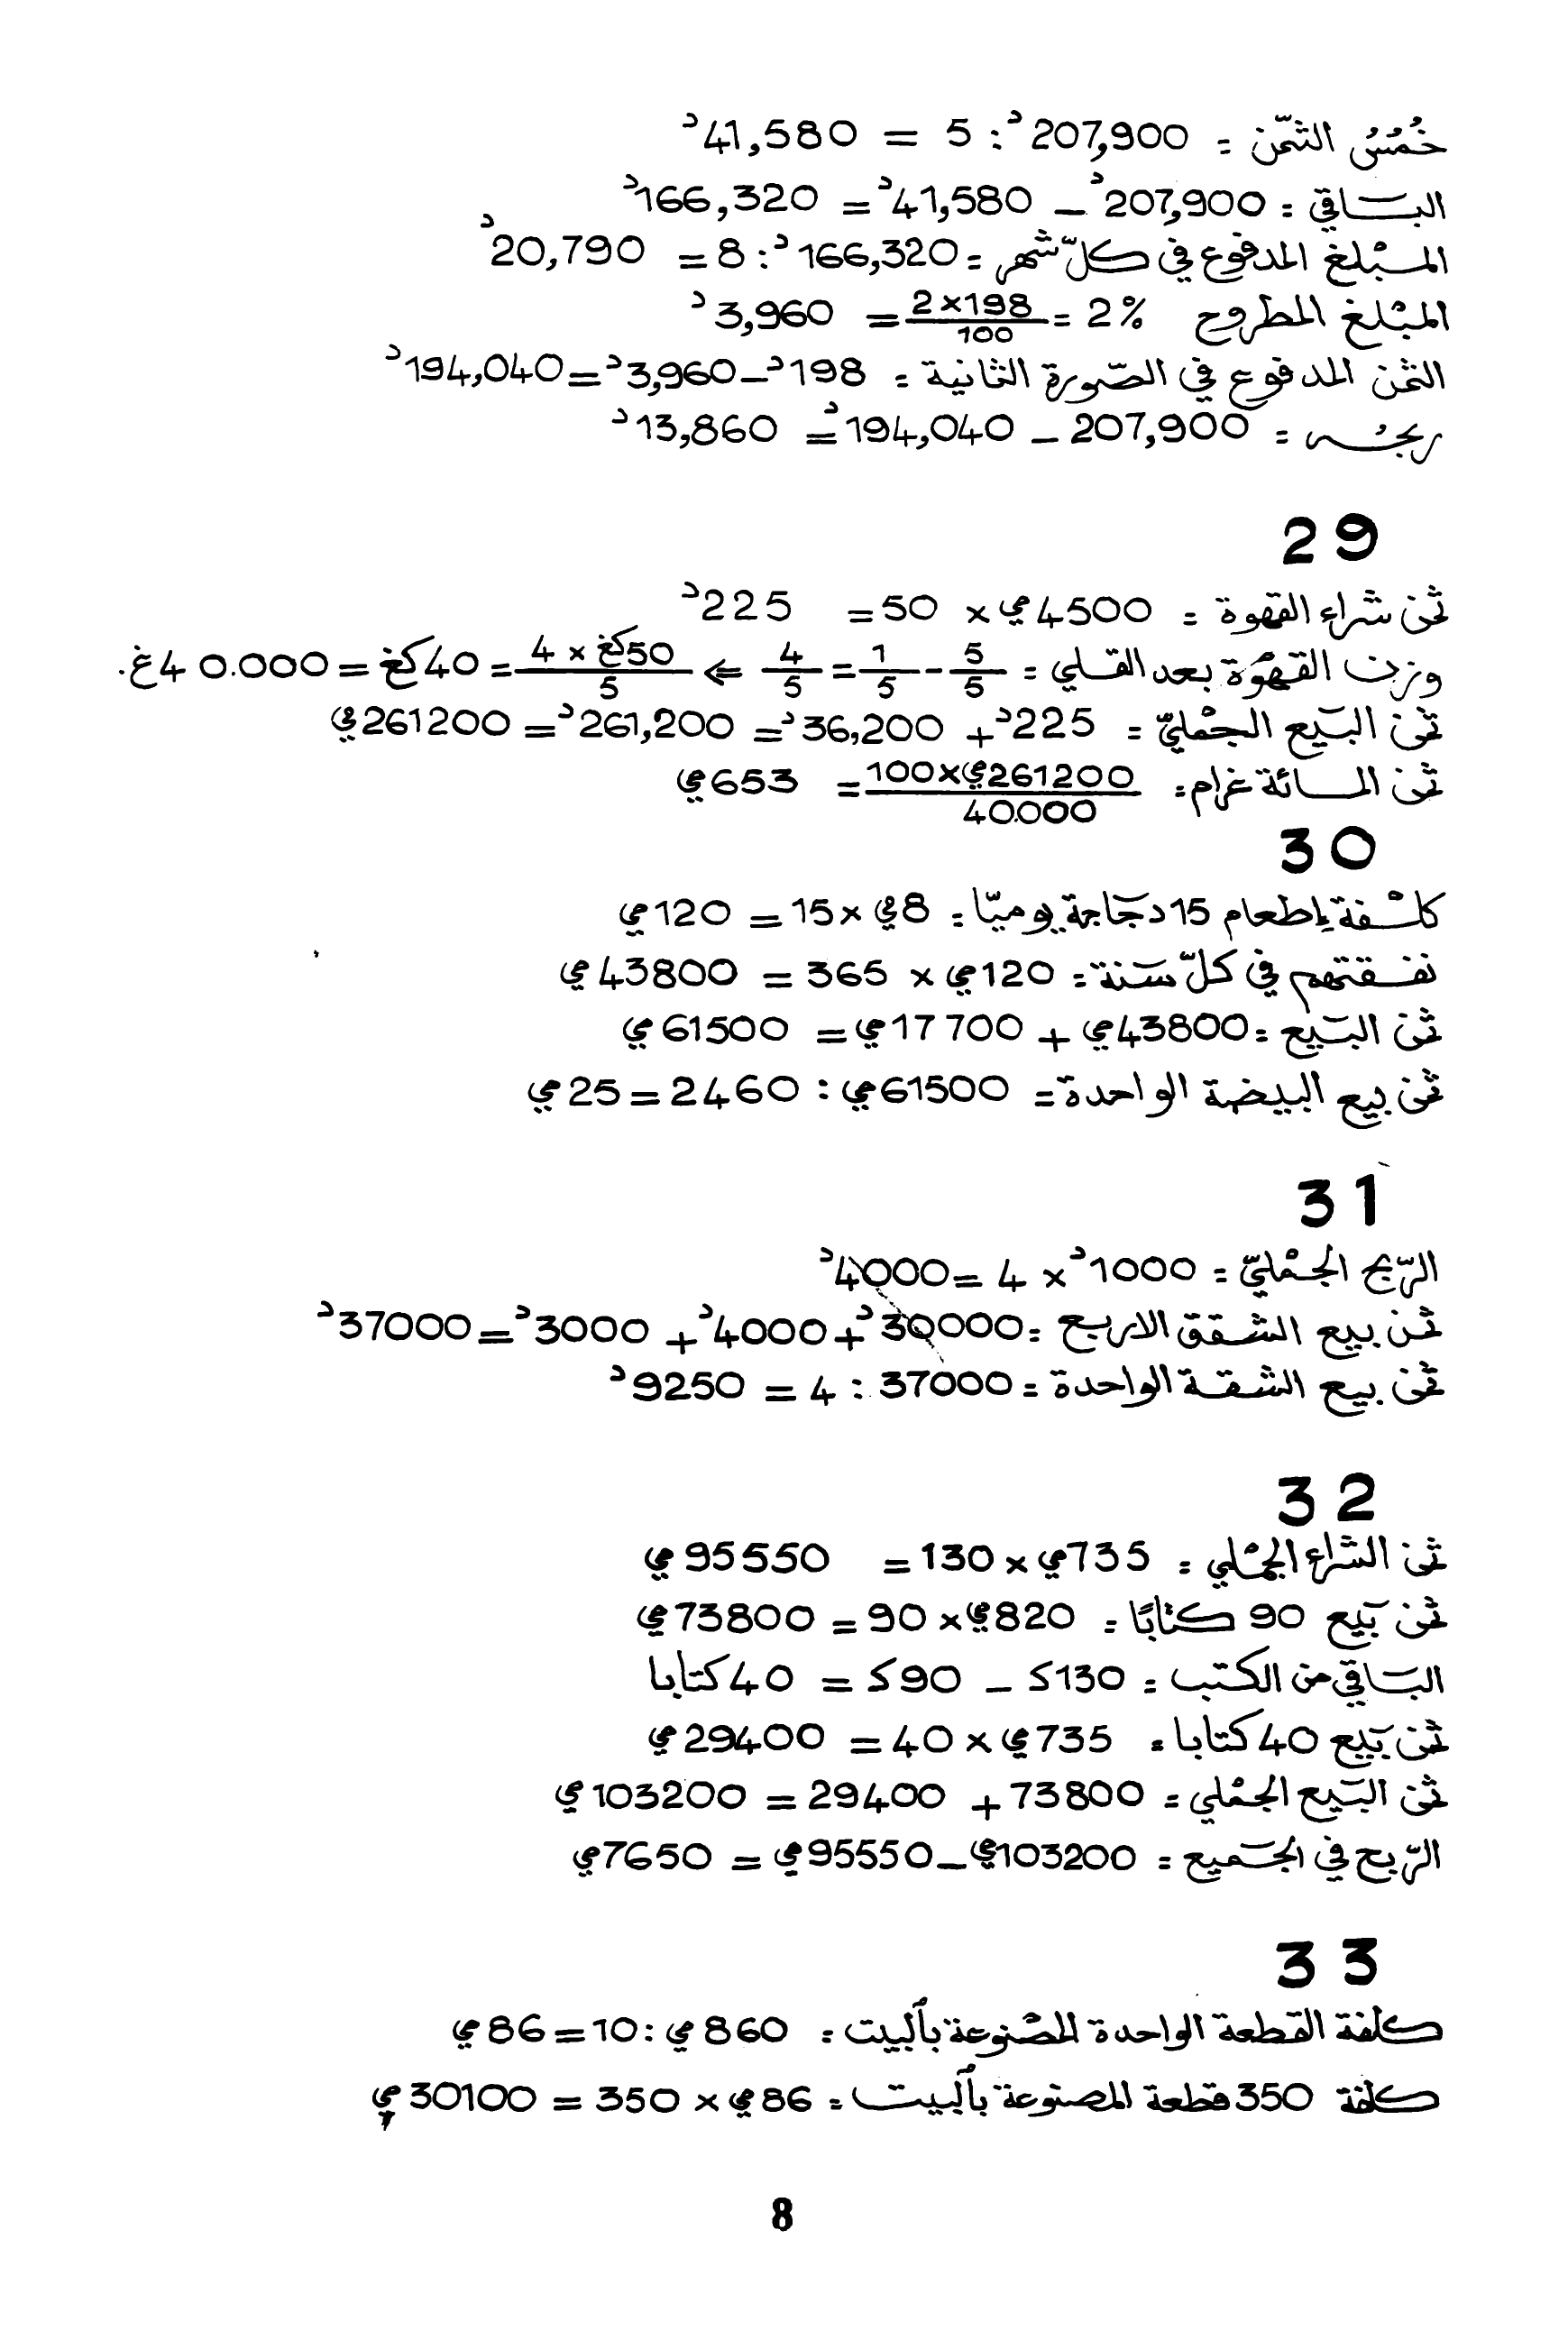 خُمُسُ الثّمن = 207,900د : 5 = 41,580د
البـاقي = 207,900د - 41,580د = 166,320د
المبْلغ المدفوع في كلّ شهر = 166,320د : 8 = 20,790د
المبْلغ المطروح 2% = 2×198/100 = 3,960د
الثمن المدفوع في الصّورة الثانية = 198د - 3,960د = 194,040د
ربحُه = 207,900 - 194,040د = 13,860د
29
ثمن شراء القهوة = 4500مي × 50 = 225د
وزن القهوة بعد القلي = 5/5 - 1/5 = 4/5 => 50كغ × 4/5 = 40كغ = 40.000غ.
ثمن البَيع الجمْليّ = 225د + 36,200د = 261,200د = 261200مي
ثمن المائة غرام = 261200مي×100/40.000 = 653مي
30
كلْفة إطعام 15 دجَاجة يوميّا = 8مي × 15 = 120مي
نفقتهم في كلّ سَنة = 120مي × 365 = 43800مي
ثمن البَيع = 43800مي + 17700مي = 61500مي
ثمن بيع البيضة الواحدة = 61500مي : 2460 = 25مي
31
الرّبح الجمْليّ = 1000د × 4 = 4000د
ثمن بيع الشقق الاربع = 30000د + 4000د + 3000د = 37000د
ثمن بيع الشقة الواحدة = 37000 : 4 = 9250د
32
ثمن الشراء الجمْلي = 735مي × 130 = 95550مي
ثمن بَيع 90 كتابًا = 820مي × 90 = 73800مي
البَاقي من الكتب = 130ك - 90ك = 40 كتابا
ثمن بَيع 40 كتابا = 735مي × 40 = 29400مي
ثمن البَيع الجمْلي = 73800 + 29400 = 103200مي
الرّبح في الجَميع = 103200مي - 95550مي = 7650مي
33
كلفة القطعة الواحدة المصْنوعة بالبيت = 860مي : 10 = 86مي
كلفة 350 قطعة المصنوعة بالبيت = 86مي × 350 = 30100مي
8